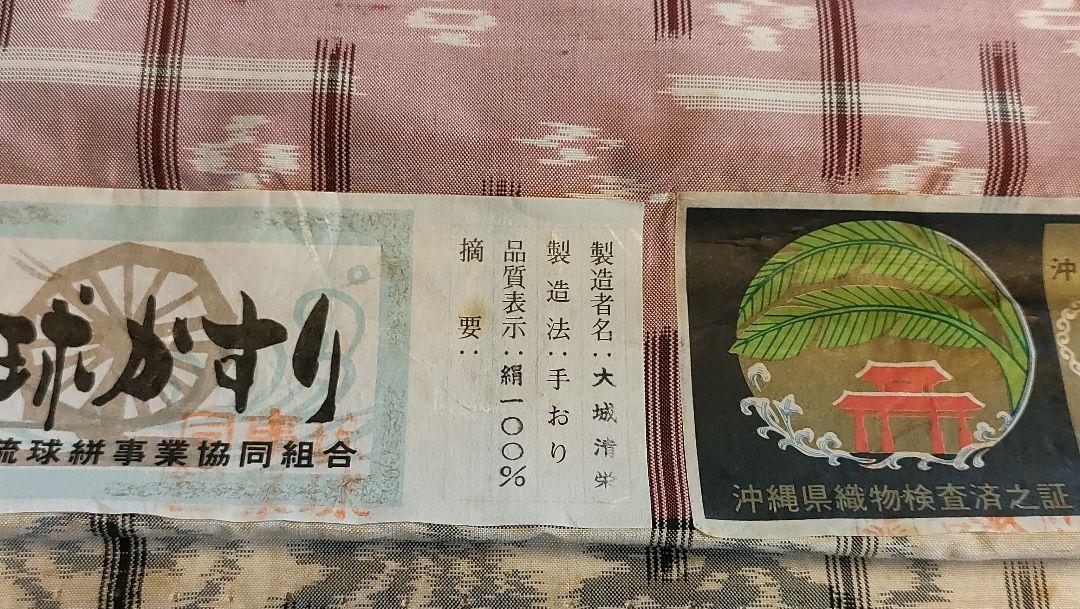 球がすり
琉球絣事業協同組合
製造者名：大城清栄
製造法：手おり
品質表示：絹一〇〇％
摘要：
沖
沖縄県織物検査済之証